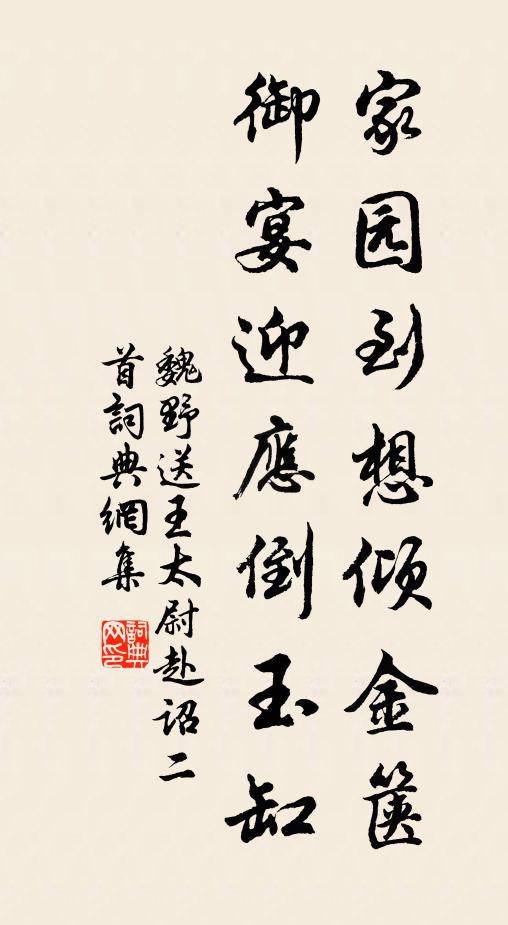 家园到想倾金箧
御宴迎應倒玉缸
魏野送王太尉赴诏二
首詞典網集
詞典
网印